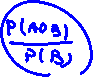 P(A∩B)
P(B)